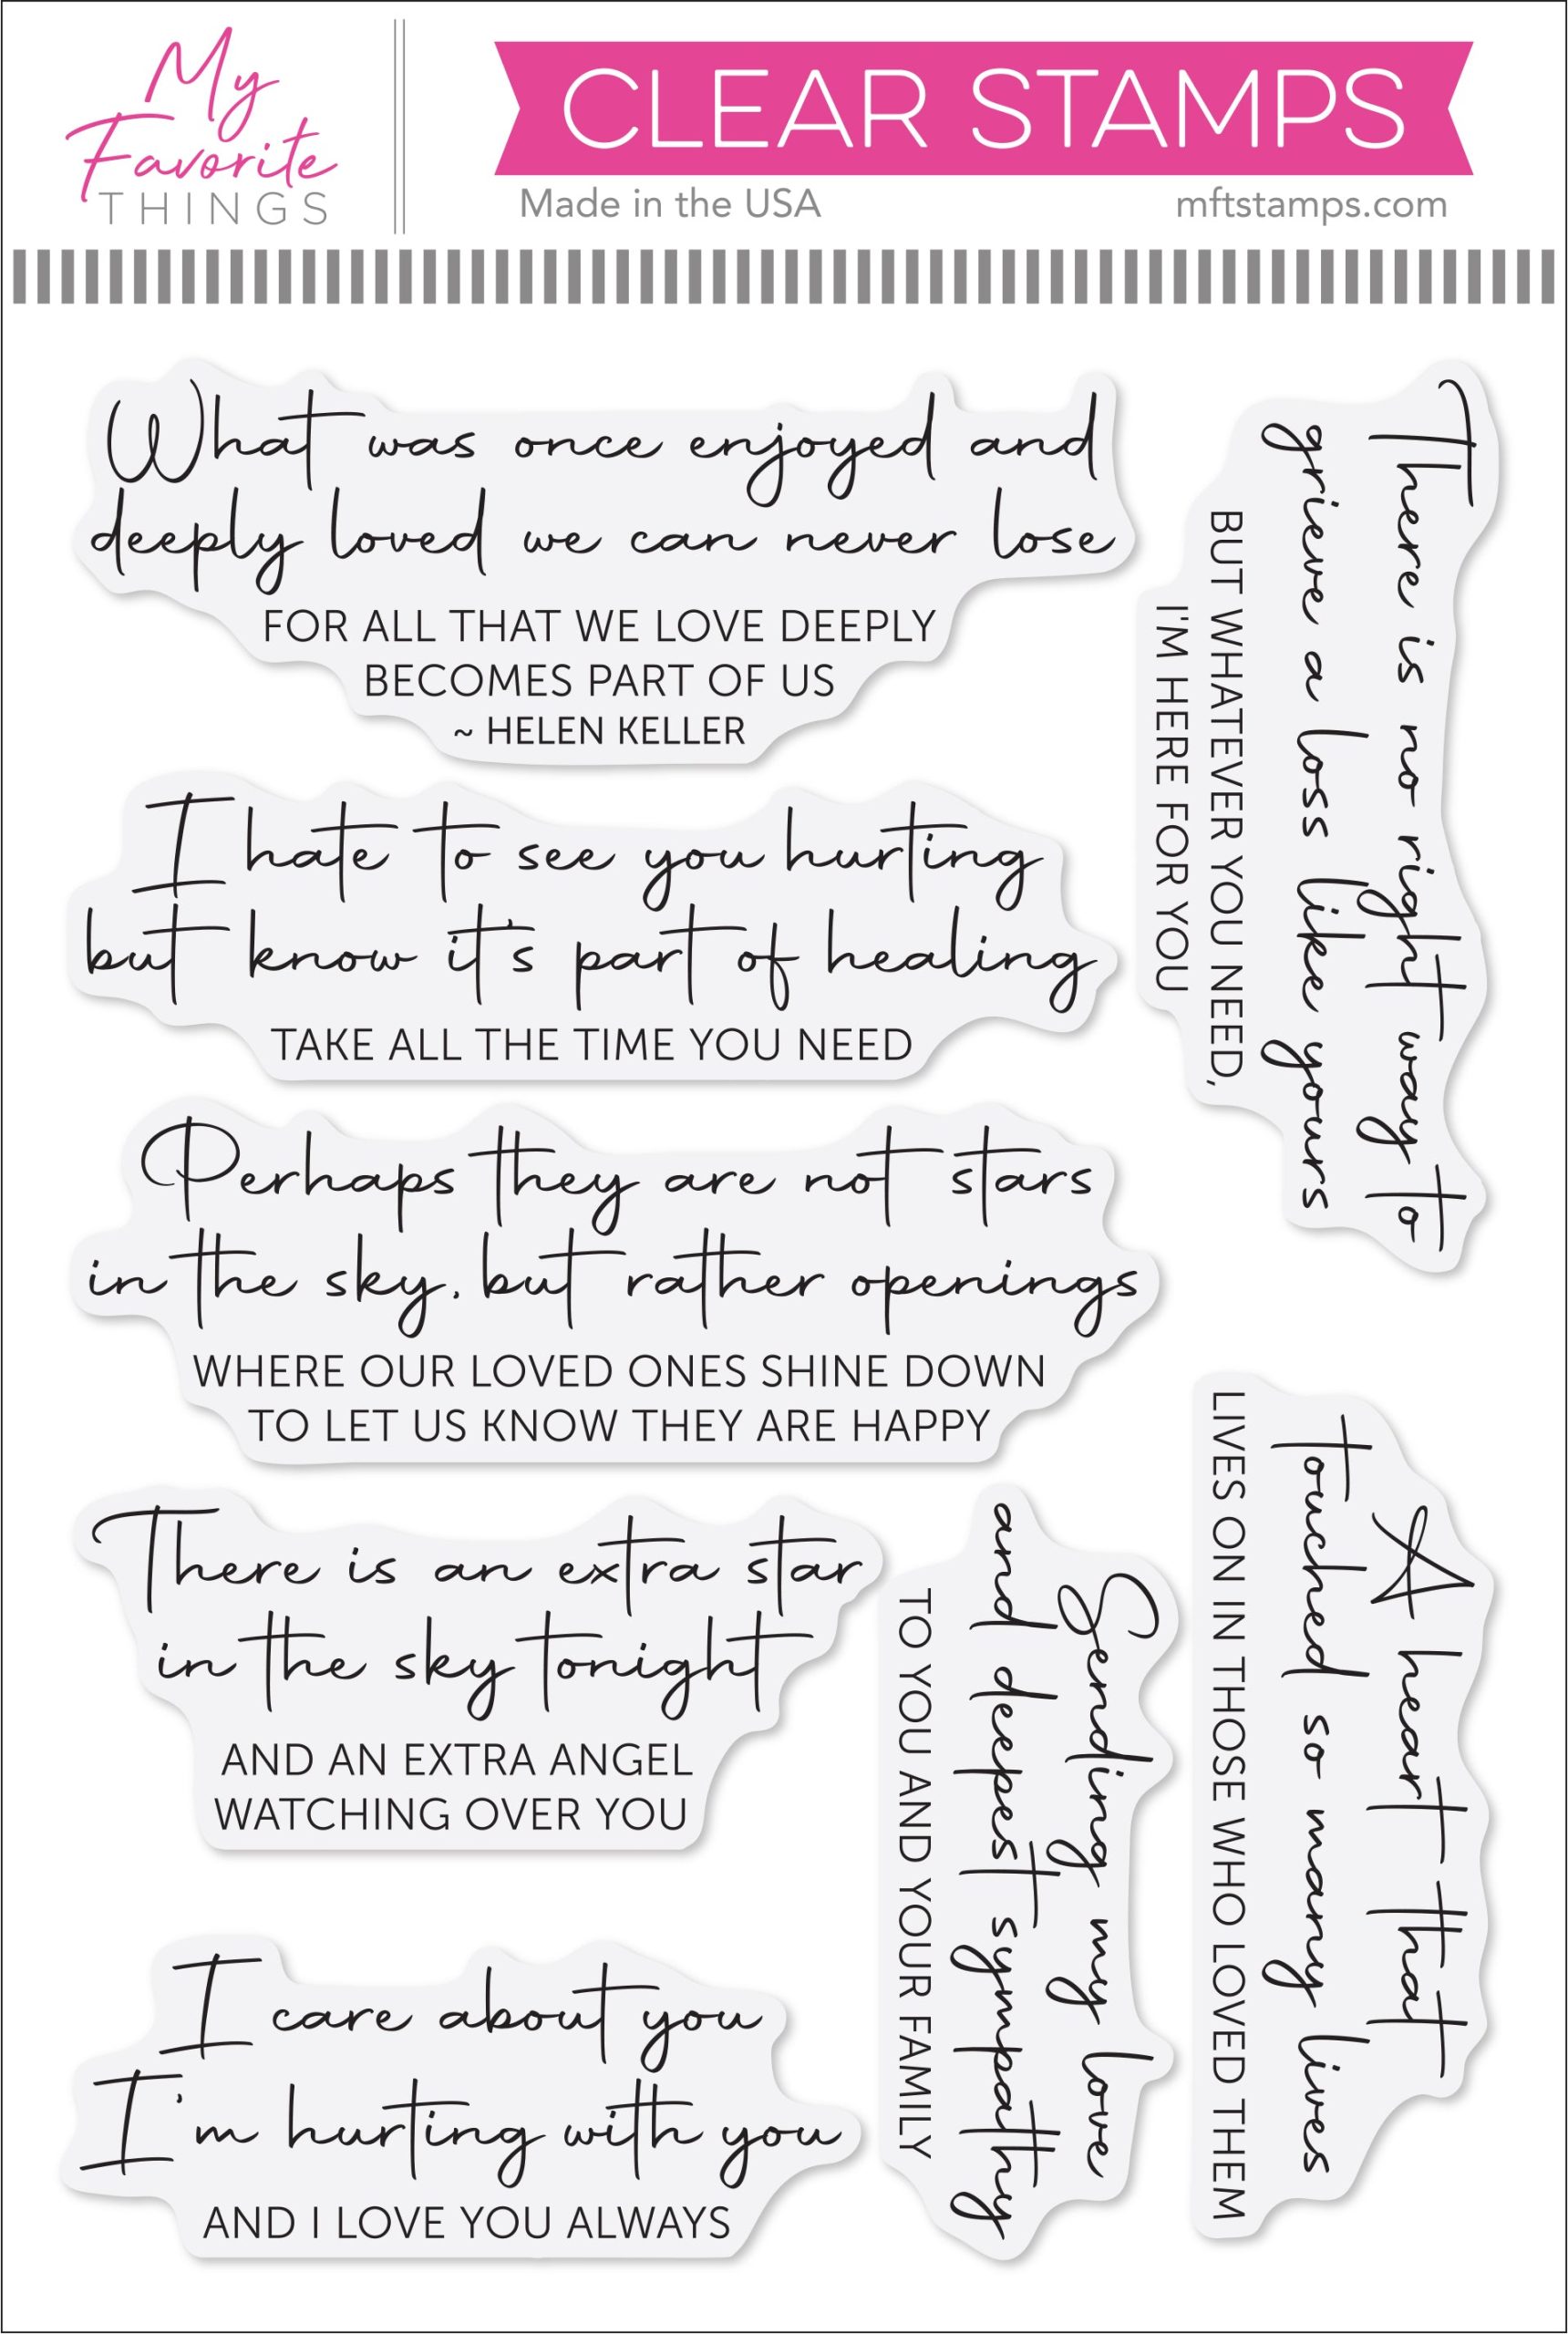 My
Favorite
THINGS
CLEAR STAMPS
Made in the USA
mftstamps.com
What was once enjoyed and
deeply loved we can never lose
FOR ALL THAT WE LOVE DEEPLY
BECOMES PART OF US
~ HELEN KELLER
There is no right way to
grieve a loss like yours
BUT WHATEVER YOU NEED,
I'M HERE FOR YOU
I hate to see you hurting
but know it's part of healing
TAKE ALL THE TIME YOU NEED
Perhaps they are not stars
in the sky, but rather openings
WHERE OUR LOVED ONES SHINE DOWN
TO LET US KNOW THEY ARE HAPPY
A heart that
touched so many lives
LIVES ON IN THOSE WHO LOVED THEM
There is an extra star
in the sky tonight
AND AN EXTRA ANGEL
WATCHING OVER YOU
Sending my love
and deepest sympathy
TO YOU AND YOUR FAMILY
I care about you
I'm hurting with you
AND I LOVE YOU ALWAYS